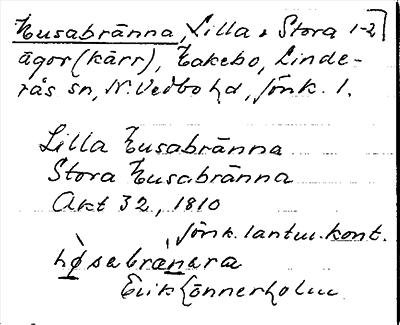 Husabränna, Lilla & Stora 1-2
ägor (kärr), Hakebo, Linde-
rås sn, N. Vedbo hd, Jönk. l.
Lilla Husabränna
Stora Husabränna
Akt 32, 1810
Jönk. lantm. kont.
Erik Lönnerholm